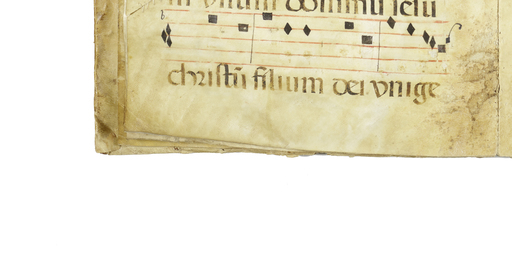 in vnum dominū iesū
christū filium dei vnige